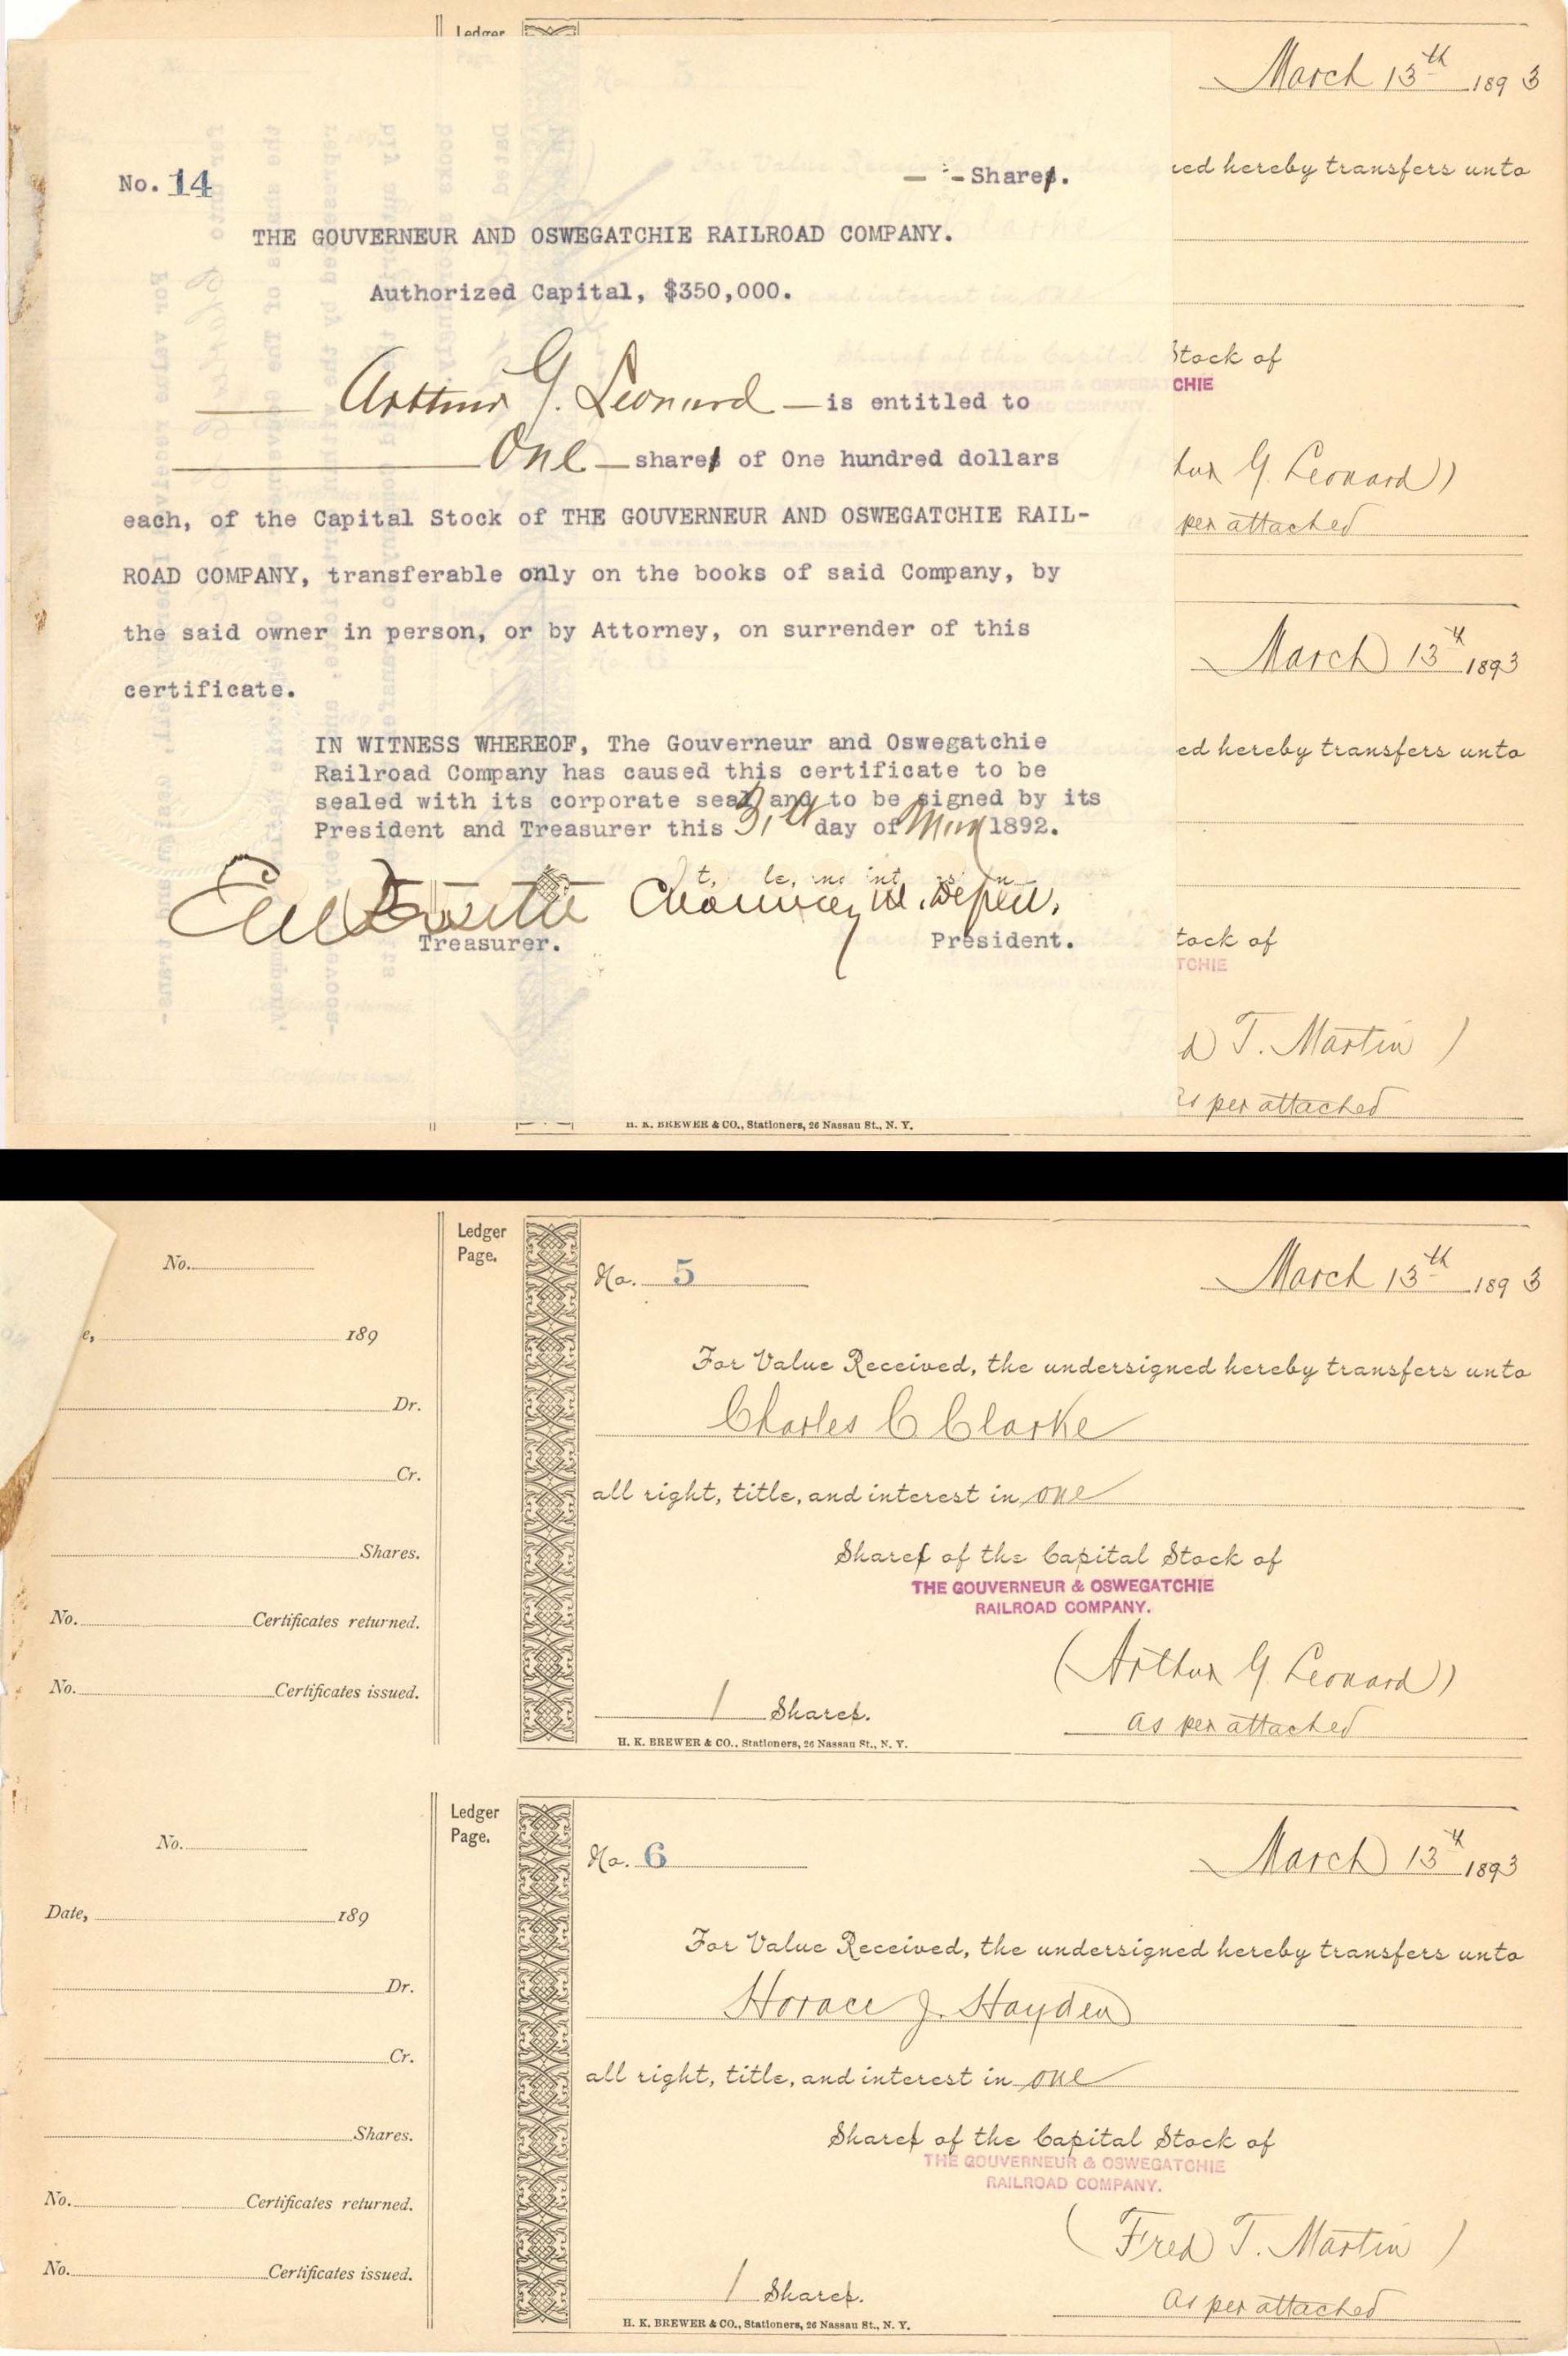 Ledger
March 13th 1893
No. 14
- - Shares.
ed hereby transfers unto
THE GOUVERNEUR AND OSWEGATCHIE RAILROAD COMPANY.
Authorized Capital, $350,000.
Stock of
CHIE
Arthur G. Leonard — is entitled to
One — shares of One hundred dollars
hur G. Leonard)
per attached
each, of the Capital Stock of THE GOUVERNEUR AND OSWEGATCHIE RAIL-
ROAD COMPANY, transferable only on the books of said Company, by
the said owner in person, or by Attorney, on surrender of this
certificate.
March 13th 1893
ed hereby transfers unto
IN WITNESS WHEREOF, The Gouverneur and Oswegatchie
Railroad Company has caused this certificate to be
sealed with its corporate seal and to be signed by its
President and Treasurer this 31st day of May 1892.
Chauncey M. Depew,
Treasurer. President.
tock of
TCHIE
d T. Martin )
as per attached
H. K. BREWER & CO., Stationers, 26 Nassau St., N. Y.
No.
e, 189
Dr.
Cr.
Shares.
No. Certificates returned.
No. Certificates issued.
Ledger
Page.
No. 5
March 13th 1893
For Value Received, the undersigned hereby transfers unto
Charles C Clarke
all right, title, and interest in one
Shares of the Capital Stock of
THE GOUVERNEUR & OSWEGATCHIE
RAILROAD COMPANY.
(Arthur G. Leonard)
1 Shares.
as per attached
H. K. BREWER & CO., Stationers, 26 Nassau St., N. Y.
No.
Date, 189
Dr.
Cr.
Shares.
No. Certificates returned.
No. Certificates issued.
Ledger
Page.
No. 6
March 13th 1893
For Value Received, the undersigned hereby transfers unto
Horace J. Hayden
all right, title, and interest in one
Shares of the Capital Stock of
THE GOUVERNEUR & OSWEGATCHIE
RAILROAD COMPANY.
( Fred T. Martin )
1 Shares.
as per attached
H. K. BREWER & CO., Stationers, 26 Nassau St., N. Y.